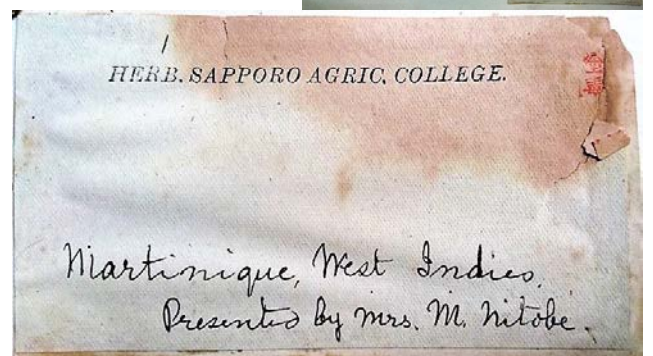 HERB. SAPPORO AGRIC. COLLEGE.
Martinique, West Indies.
Presented by Mrs. M. Nitobe.